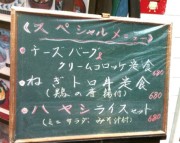 〈スペシャルメニュー〉
・チーズバーグ&
クリームコロッケ定食 680
・ねぎトロ丼定食
(鶏の唐揚付) 680
・ハヤシライスセット
(ミニサラダ、みそ汁付) 680